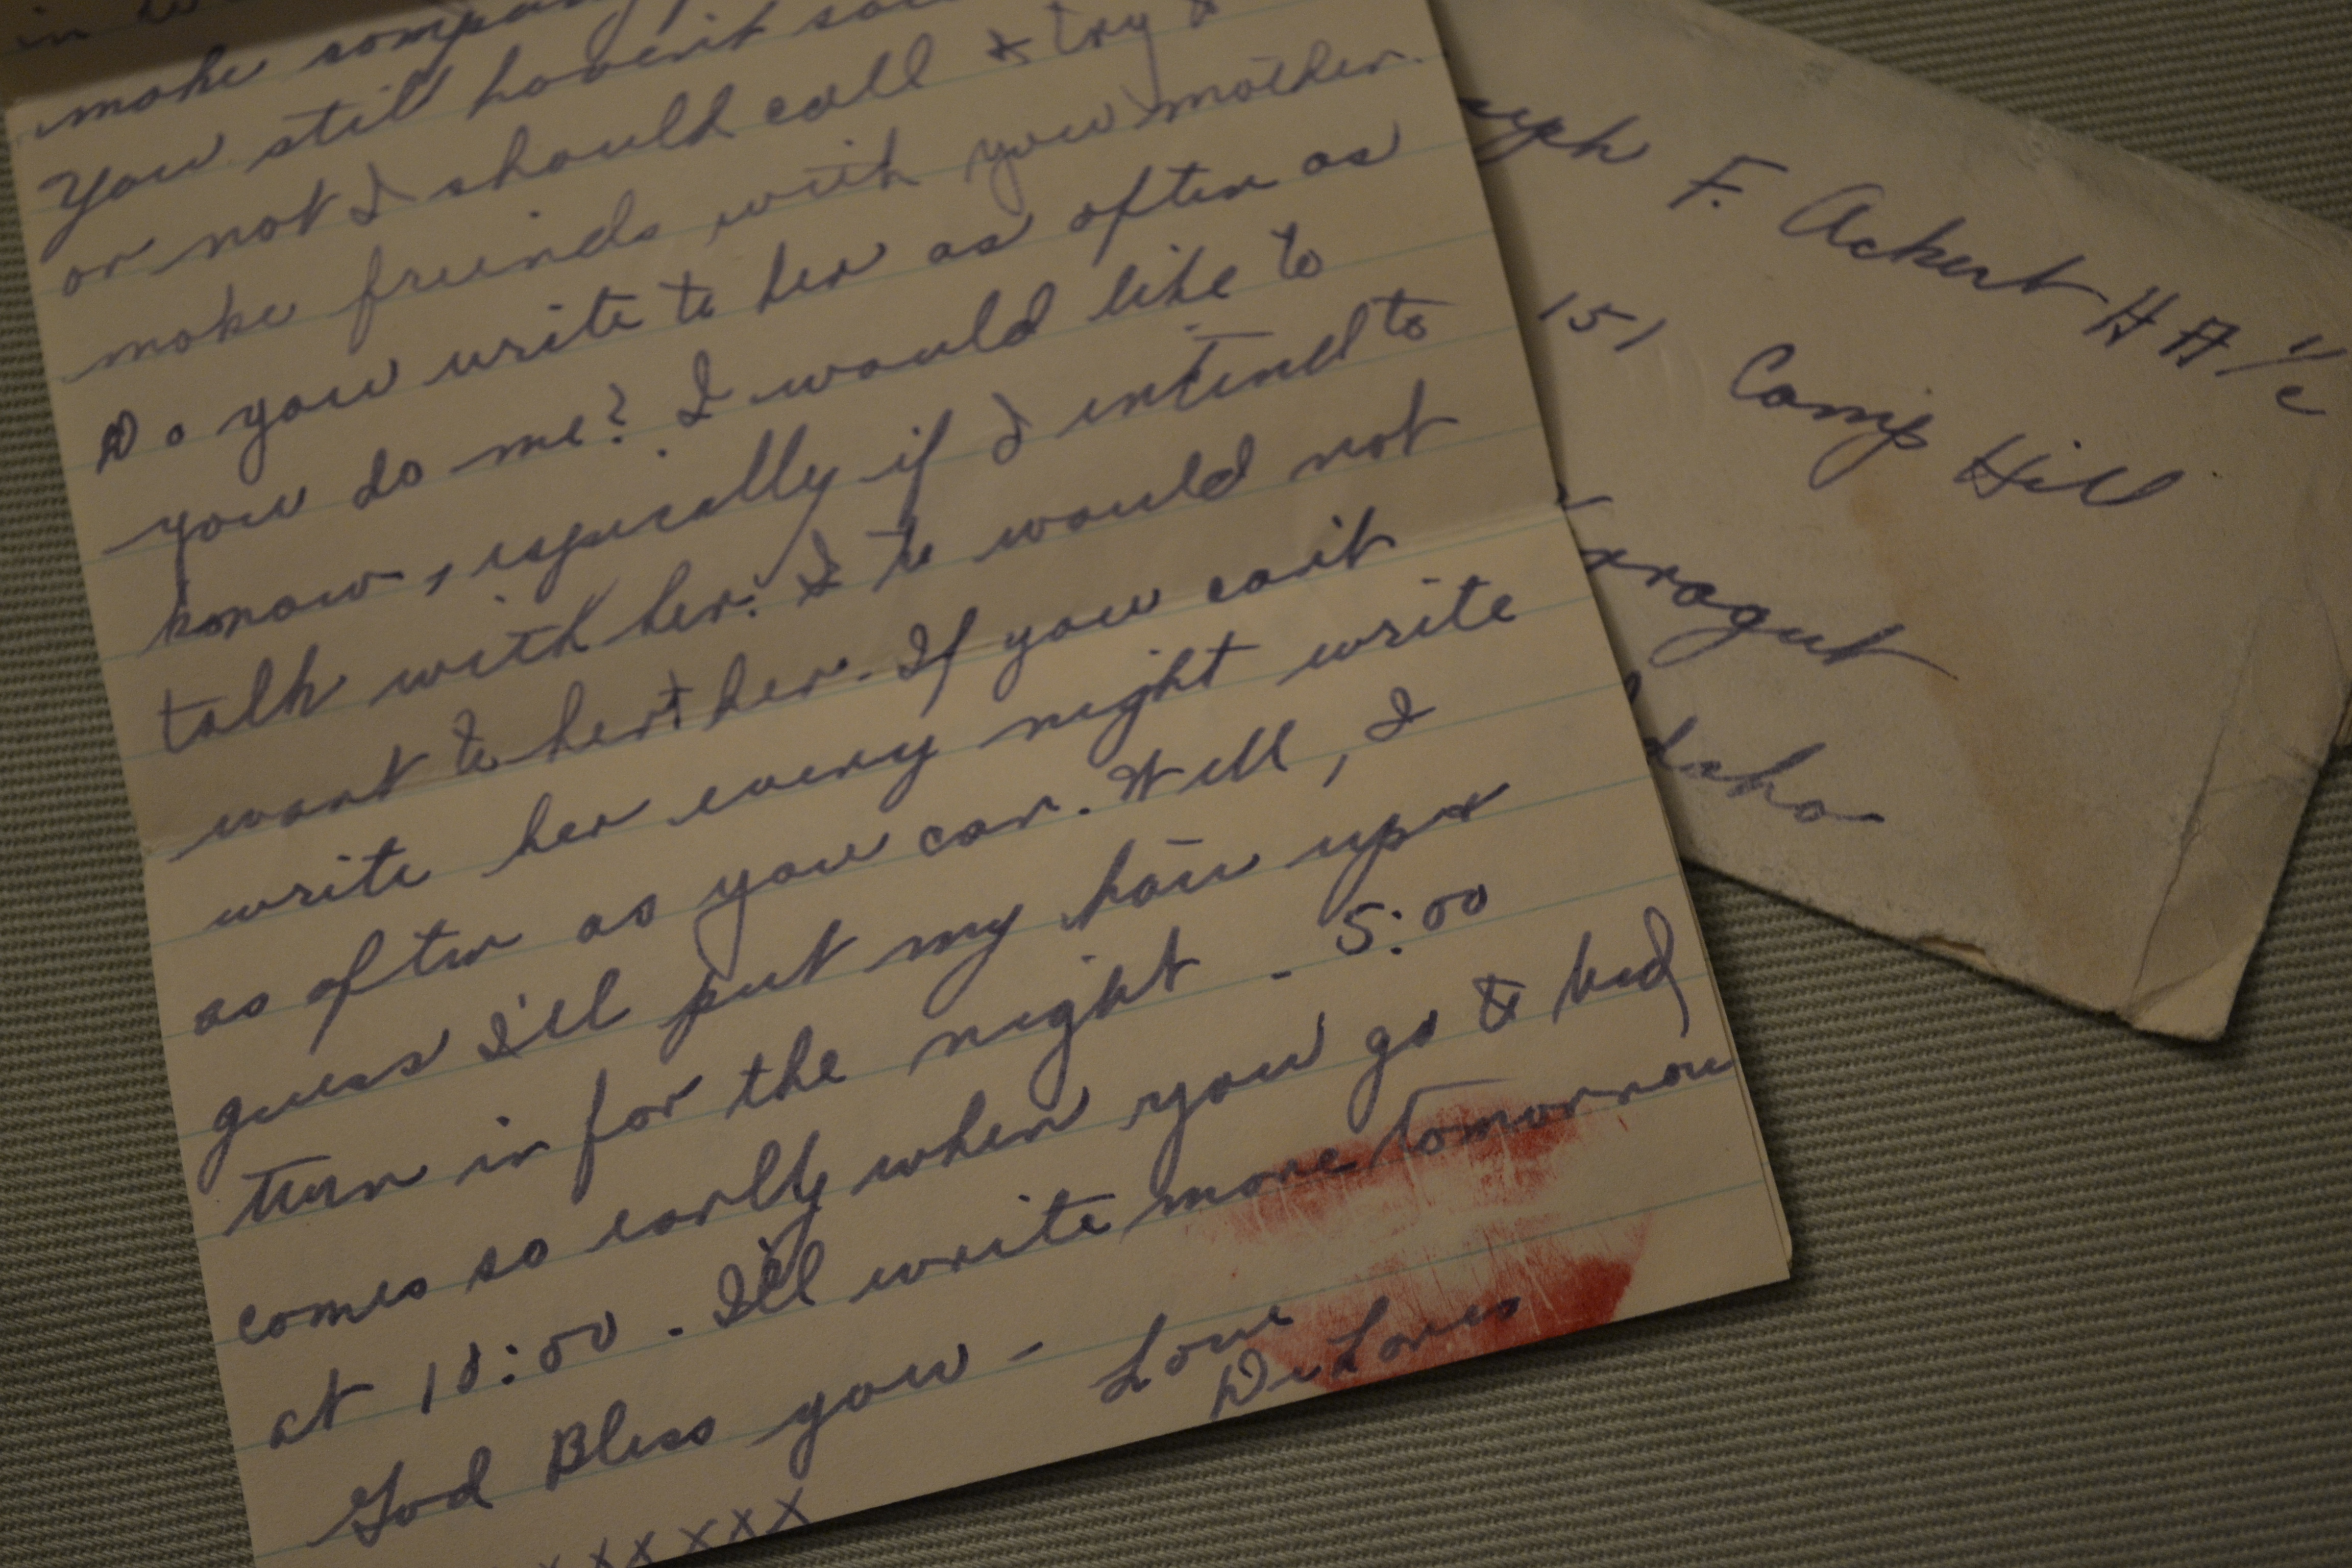 make
You still haven't
or not I should call & try &
make friends with your mother.
Do you write to her as often as
you do me? I would like to
know, especially if I intend to
talk with her. I to would not
want to hert her. If you cait
write her every night write
as often as you can. Well, I
guess I'll put my hair up &
turn in for the night - 5:00
comes so early when you go to bed
at 10:00. I'll write more tomorrow
God Bless you - Love
DeLores
xxxxxx
F. Ackert HA 1/c
151 Camp Hill